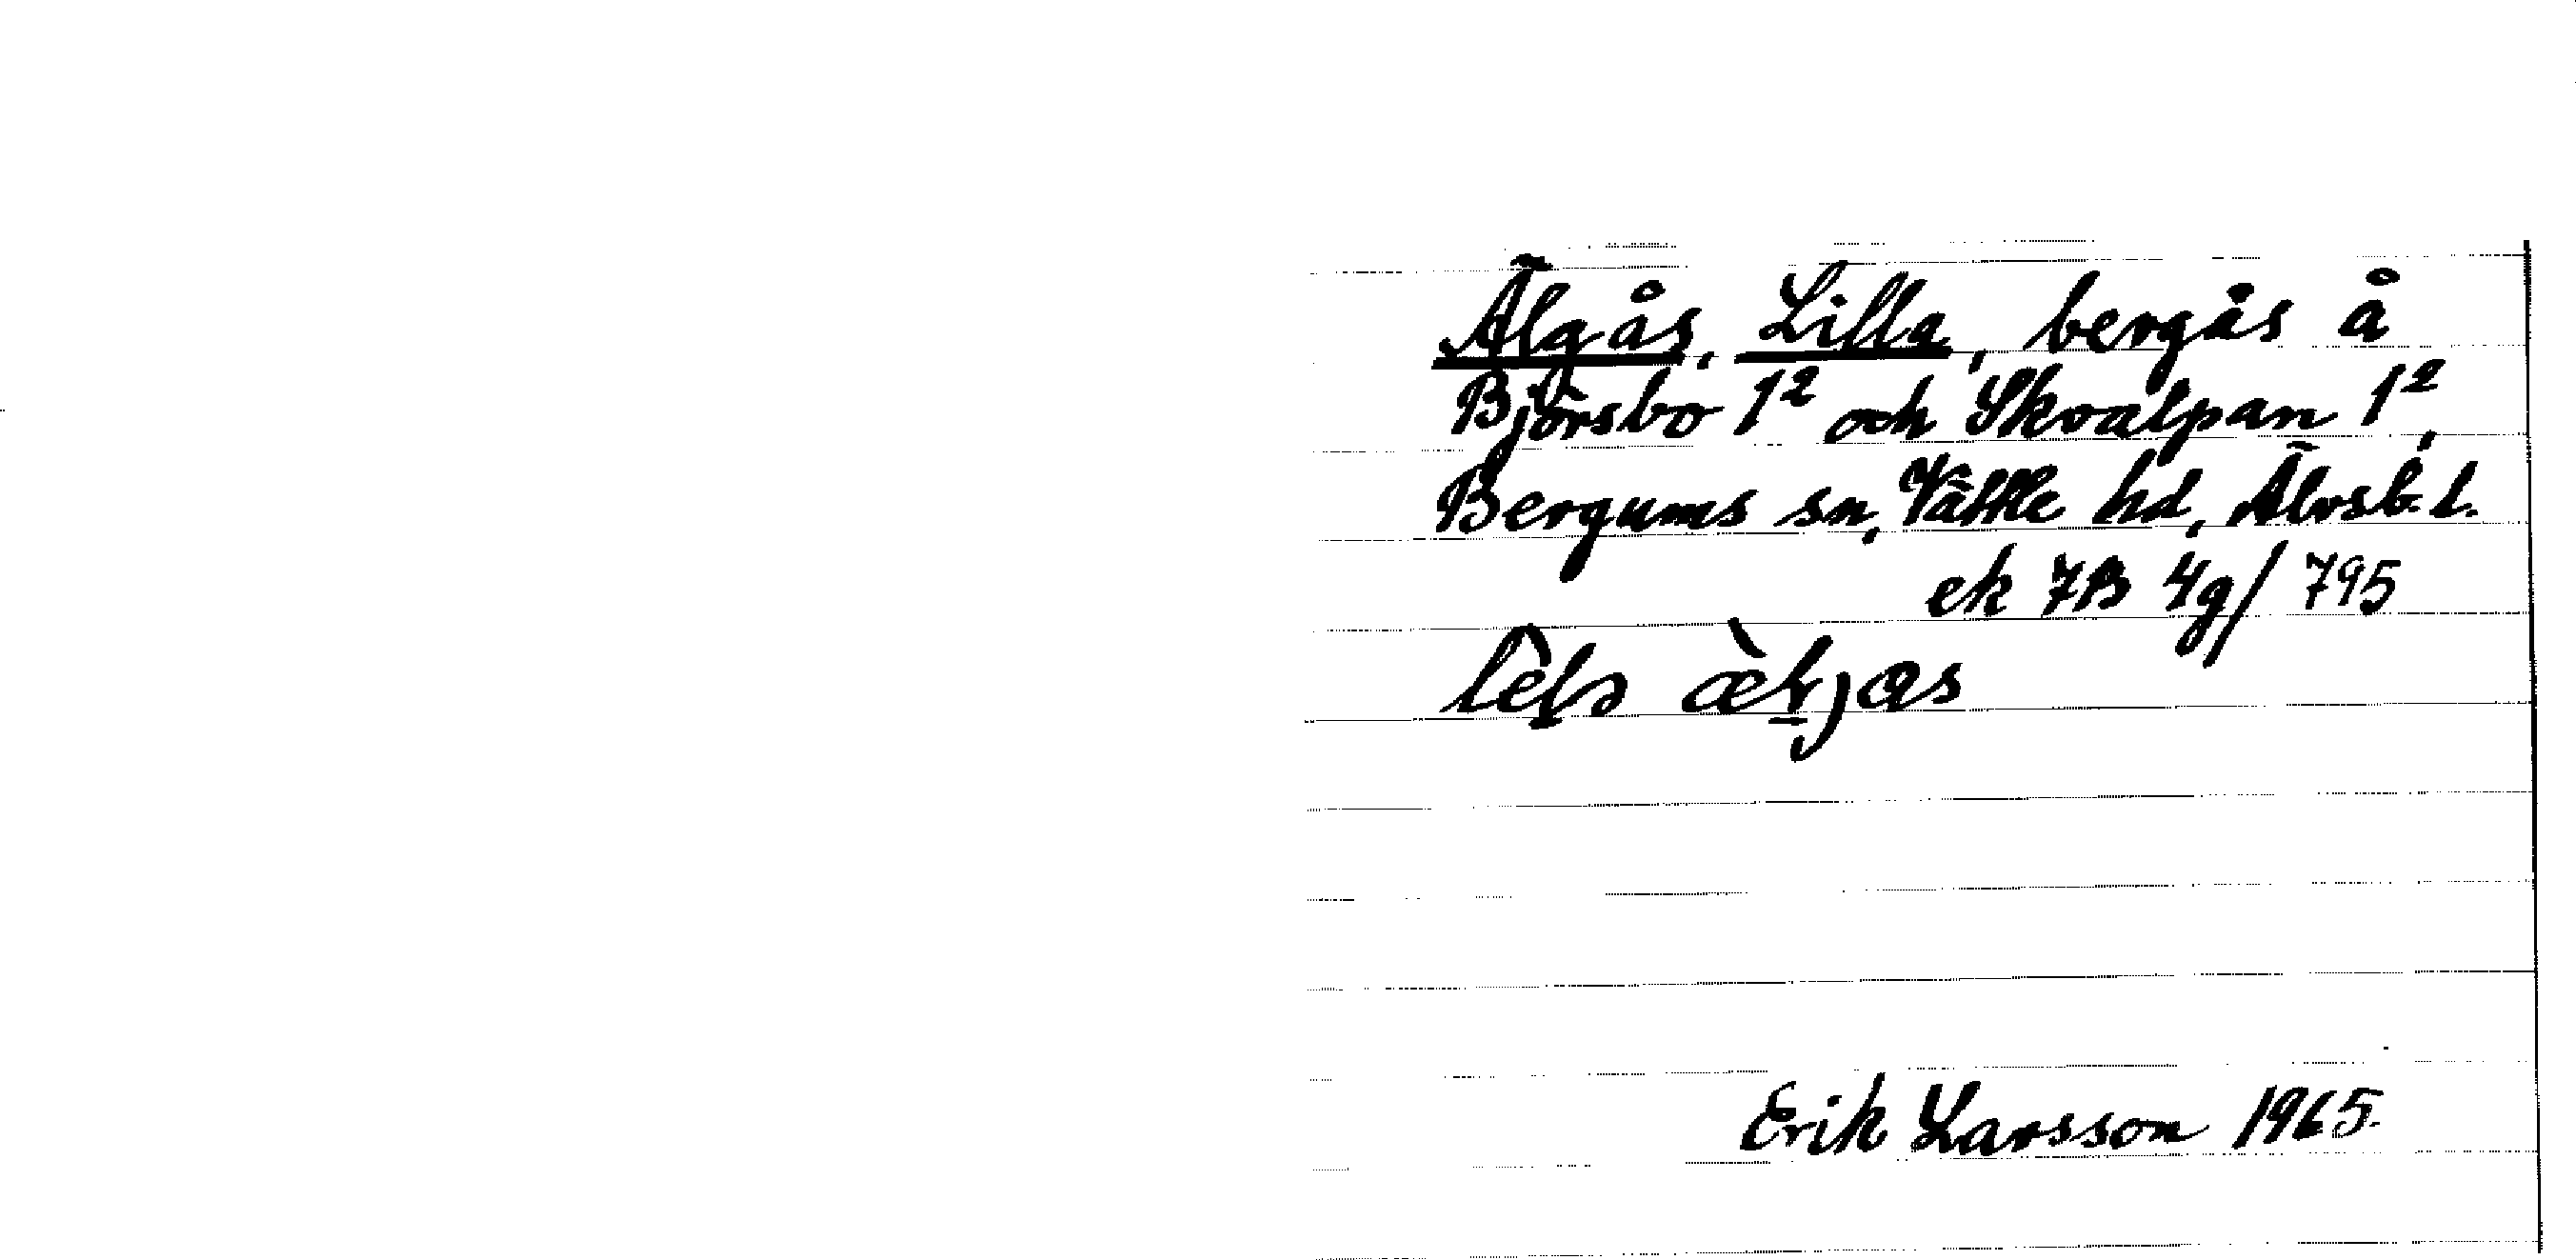 Älgås, Lilla, bergås å
Björsbo 1² och Skvalpan 1²,
Bergums sn, Vättle hd, Älvsb. l.
ek 7B 4g/ 795
Erik Larsson 1965.